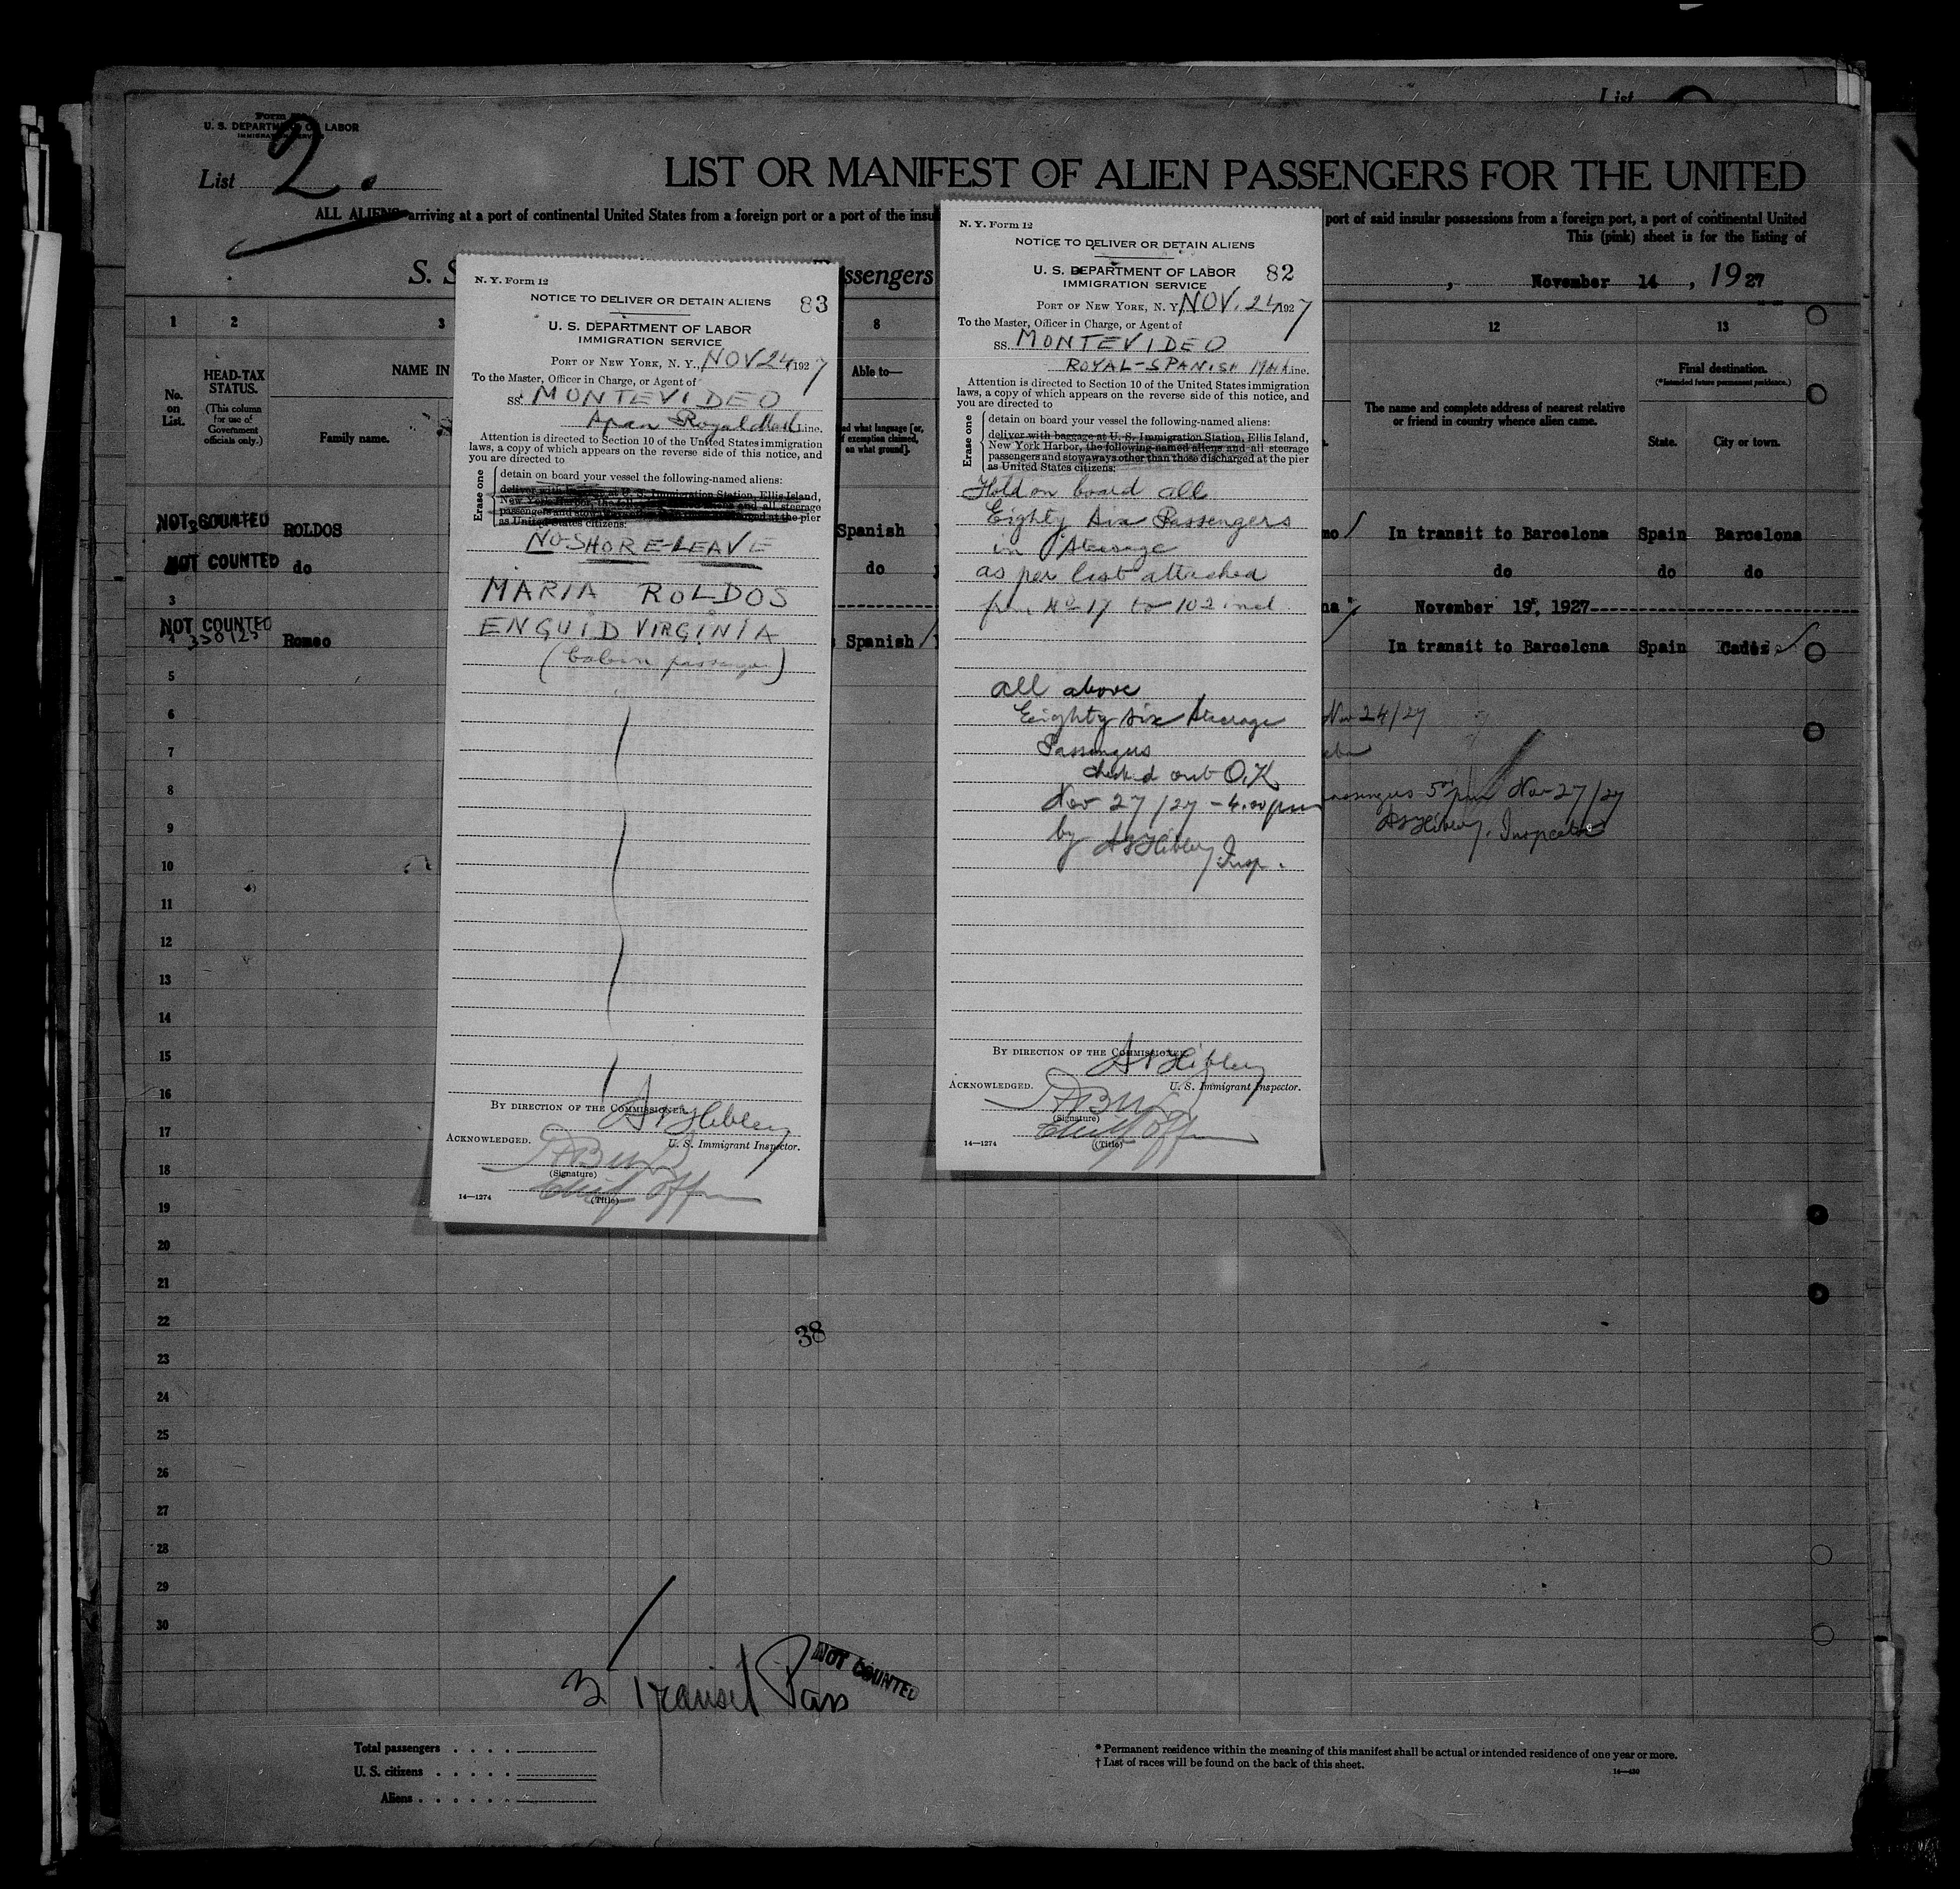 List
Form
U. S. DEPARTMENT OF LABOR
IMMIGRATION SERVICE
List 2.
LIST OR MANIFEST OF ALIEN PASSENGERS FOR THE UNITED
ALL ALIENS arriving at a port of continental United States from a foreign port or a port of the insu
port of said insular possessions from a foreign port, a port of continental United
This (pink) sheet is for the listing of
S. S
ssengers
November 14, 1927
1 2 3 8 12 13
No. on List.
HEAD-TAX STATUS.
(This column for use of Government officials only.)
NAME IN
Family name.
Able to—
d what language [or, if exemption claimed, on what ground].
The name and complete address of nearest relative or friend in country whence alien came.
Final destination.
(*Intended future permanent residence.)
State. City or town.
NOT COUNTED ROLDOS Spanish In transit to Barcelona Spain Barcelona
NOT COUNTED do do do do do
3 November 19, 1927
NOT COUNTED
330125 Romeo Spanish In transit to Barcelona Spain Cadiz
5
6 Nov 24/27
7
8 5 pm Nov 27/27
9 Inspector
10
11
12
13
14
15
16
17
18
19
20
21
22
38
23
24
25
26
27
28
29
30
3 Transit Pass NOT COUNTED
Total passengers . . . .
U. S. citizens . . . . .
Aliens . . . . . .
* Permanent residence within the meaning of this manifest shall be actual or intended residence of one year or more.
† List of races will be found on the back of this sheet.
14—430
N. Y. Form 12
NOTICE TO DELIVER OR DETAIN ALIENS 83
U. S. DEPARTMENT OF LABOR
IMMIGRATION SERVICE
PORT OF NEW YORK, N. Y., NOV 24, 1927
To the Master, Officer in Charge, or Agent of
SS. MONTEVIDEO
Royal Mail Line.
Attention is directed to Section 10 of the United States immigration
laws, a copy of which appears on the reverse side of this notice, and
you are directed to
Erase one
detain on board your vessel the following-named aliens:
deliver with baggage at U. S. Immigration Station, Ellis Island,
New York Harbor, and all steerage
passengers and at the pier
as United States citizens:
NO-SHORE-LEAVE
MARIA ROLDOS
ENGUID VIRGINIA
(Cabin passenger)
BY DIRECTION OF THE COMMISSIONER.
ACKNOWLEDGED. U. S. Immigrant Inspector.
(Signature)
Chief Off
14—1274 (Title)
N. Y. Form 12
NOTICE TO DELIVER OR DETAIN ALIENS
U. S. DEPARTMENT OF LABOR 82
IMMIGRATION SERVICE
PORT OF NEW YORK, N. Y. NOV. 24, 1927
To the Master, Officer in Charge, or Agent of
SS. MONTEVIDEO
ROYAL-SPANISH Mail Line.
Attention is directed to Section 10 of the United States immigration
laws, a copy of which appears on the reverse side of this notice, and
you are directed to
Erase one
detain on board your vessel the following-named aliens:
deliver with baggage at U. S. Immigration Station, Ellis Island,
New York Harbor, the following-named aliens and all steerage
passengers and stowaways other than those discharged at the pier
as United States citizens:
Hold on board all
Eighty Six Passengers
in Steerage
as per list attached
from No 17 to 102 incl.
all above
Eighty six Steerage
Passengers
checked out O.K.
Nov 27/27 - 4.00 pm
by Insp.
BY DIRECTION OF THE COMMISSIONER.
ACKNOWLEDGED. U. S. Immigrant Inspector.
(Signature)
Chief Off
14—1274 (Title)